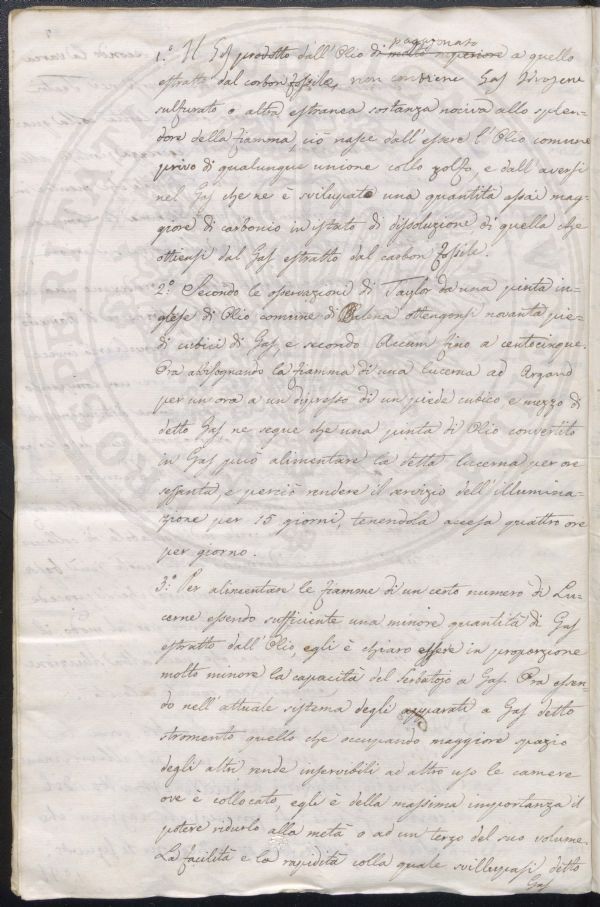 paragonato
1.° Il Gas prodotto dall'Olio di molto superiore a quello
estratto dal carbon fossile, non contiene Gas Idrogene
sulfurato o altra estranea sostanza nociva allo splen-
dore della fiamma, ciò nasce dall'essere l'Olio comune
privo di qualunque unione collo zolfo, e dall'aversi
nel Gas che ne è svilupato una quantità assai mag-
giore di carbonio in istato di dissoluzione di quella che
ottiensi dal Gas estratto dal carbon fossile.
2.° Secondo le osservazioni di Taylor da una pinta in-
glese di Olio comune di Balena ottengonsi novanta pie-
di cubici di Gas, e secondo Accum fino a centocinque.
Ora abbisognando la fiamma di una lucerna ad Argand
per un'ora a un dipresso di un piede cubico e mezzo di
detto Gas ne segue che una pinta di Olio convertito
in Gas può alimentare la detta lucerna per ore
sessanta, e perciò rendere il servizio dell'illumina-
zione per 15 giorni, tenendola accesa quattro ore
per giorno.
3.° Per alimentare le fiamme di un certo numero di Lu-
cerne essendo sufficiente una minore quantità di Gas
estratto dall'Olio, egli è chiaro essere in proporzione
molto minore la capacità del serbatojo a Gas. Ora essen-
do nell'attuale sistema degli apparati a Gas detto
stromento quello che occupando maggiore spazio
degli altri rende inservibili ad altro uso le camere
ove è collocato, egli è della massima importanza il
potere ridurlo alla metà o ad un terzo del suo volume.
La facilità e la rapidità colla quale svillupasi detto
Gas